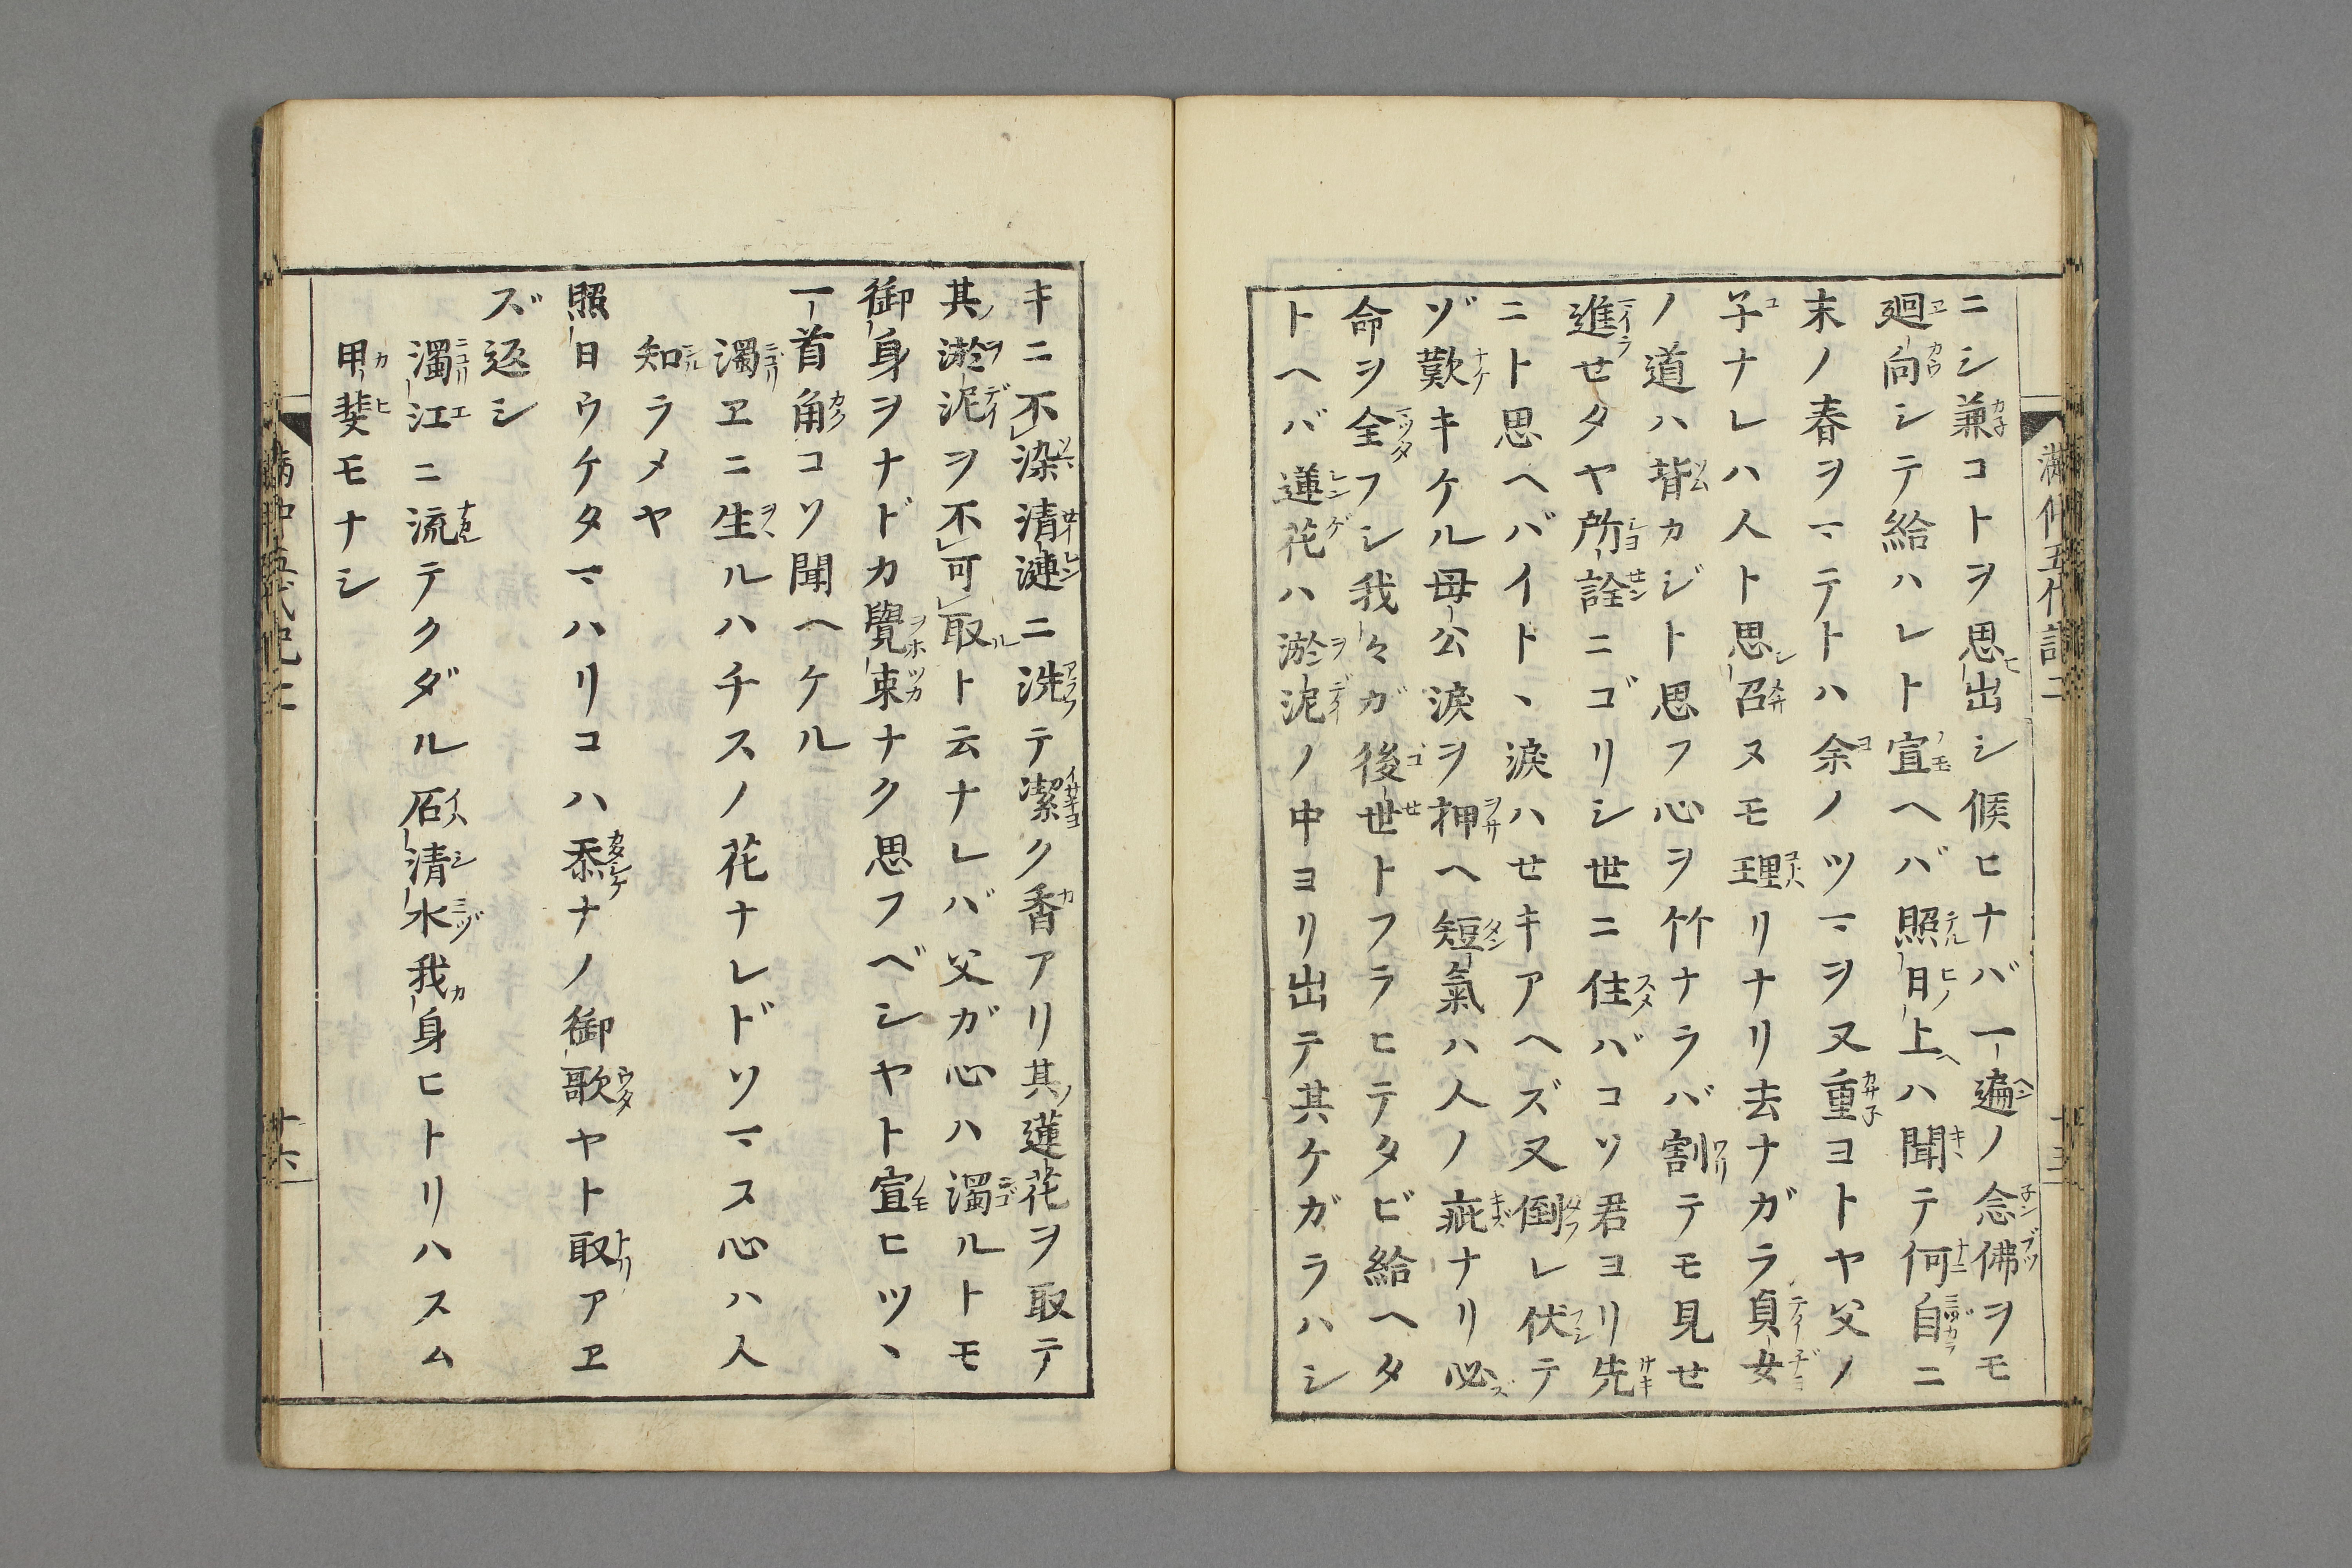 ニシ兼コトヲ思出シ候ヒナバ一遍ノ念佛ヲモ
廻向シテ給ハレト宣ヘバ照日上ハ聞テ何自ニ
末ノ春ヲマテトハ余ノツマヲ又重ヨトヤ父ノ
子ナレハ人ト思召ヌモ理リナリ去ナガラ貞女
ノ道ハ背カジト思フ心ヲ竹ナラバ割テモ見せ
進せタヤ所詮ニゴリシ世ニ住バコソ君ヨリ先
ニト思ヘバイトヽ涙ハせキアヘズ又倒レ伏テ
ゾ歎キケル母公涙ヲ押ヘ短氣ハ人ノ疵ナリ必
命ヲ全フシ我々ガ後世トフラヒテタビ給ヘタ
トヘバ蓮花ハ淤泥ノ中ヨリ出テ其ケガラハシ
キニ不染清漣ニ洗テ潔ク香アリ其蓮花ヲ取テ
其淤泥ヲ不可取ト云ナレバ父ガ心ハ濁ルトモ
御身ヲナドカ覺束ナク思フベシヤト宣ヒツヽ
一首角コソ聞ヘケル
濁ヱニ生ルハチスノ花ナレドソマス心ハ人
知ラメヤ
照日ウケタマハリコハ忝ナノ御歌ヤト取アヱ
ズ返シ
濁江ニ流テクダル石清水我身ヒトリハスム
甲斐モナシ